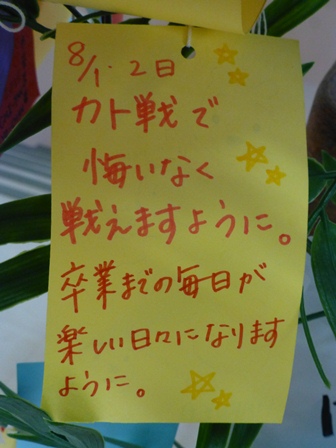 8/1・2日
カト戦で
悔いなく
戦えますように。
卒業までの毎日が
楽しい日々になります
ように。